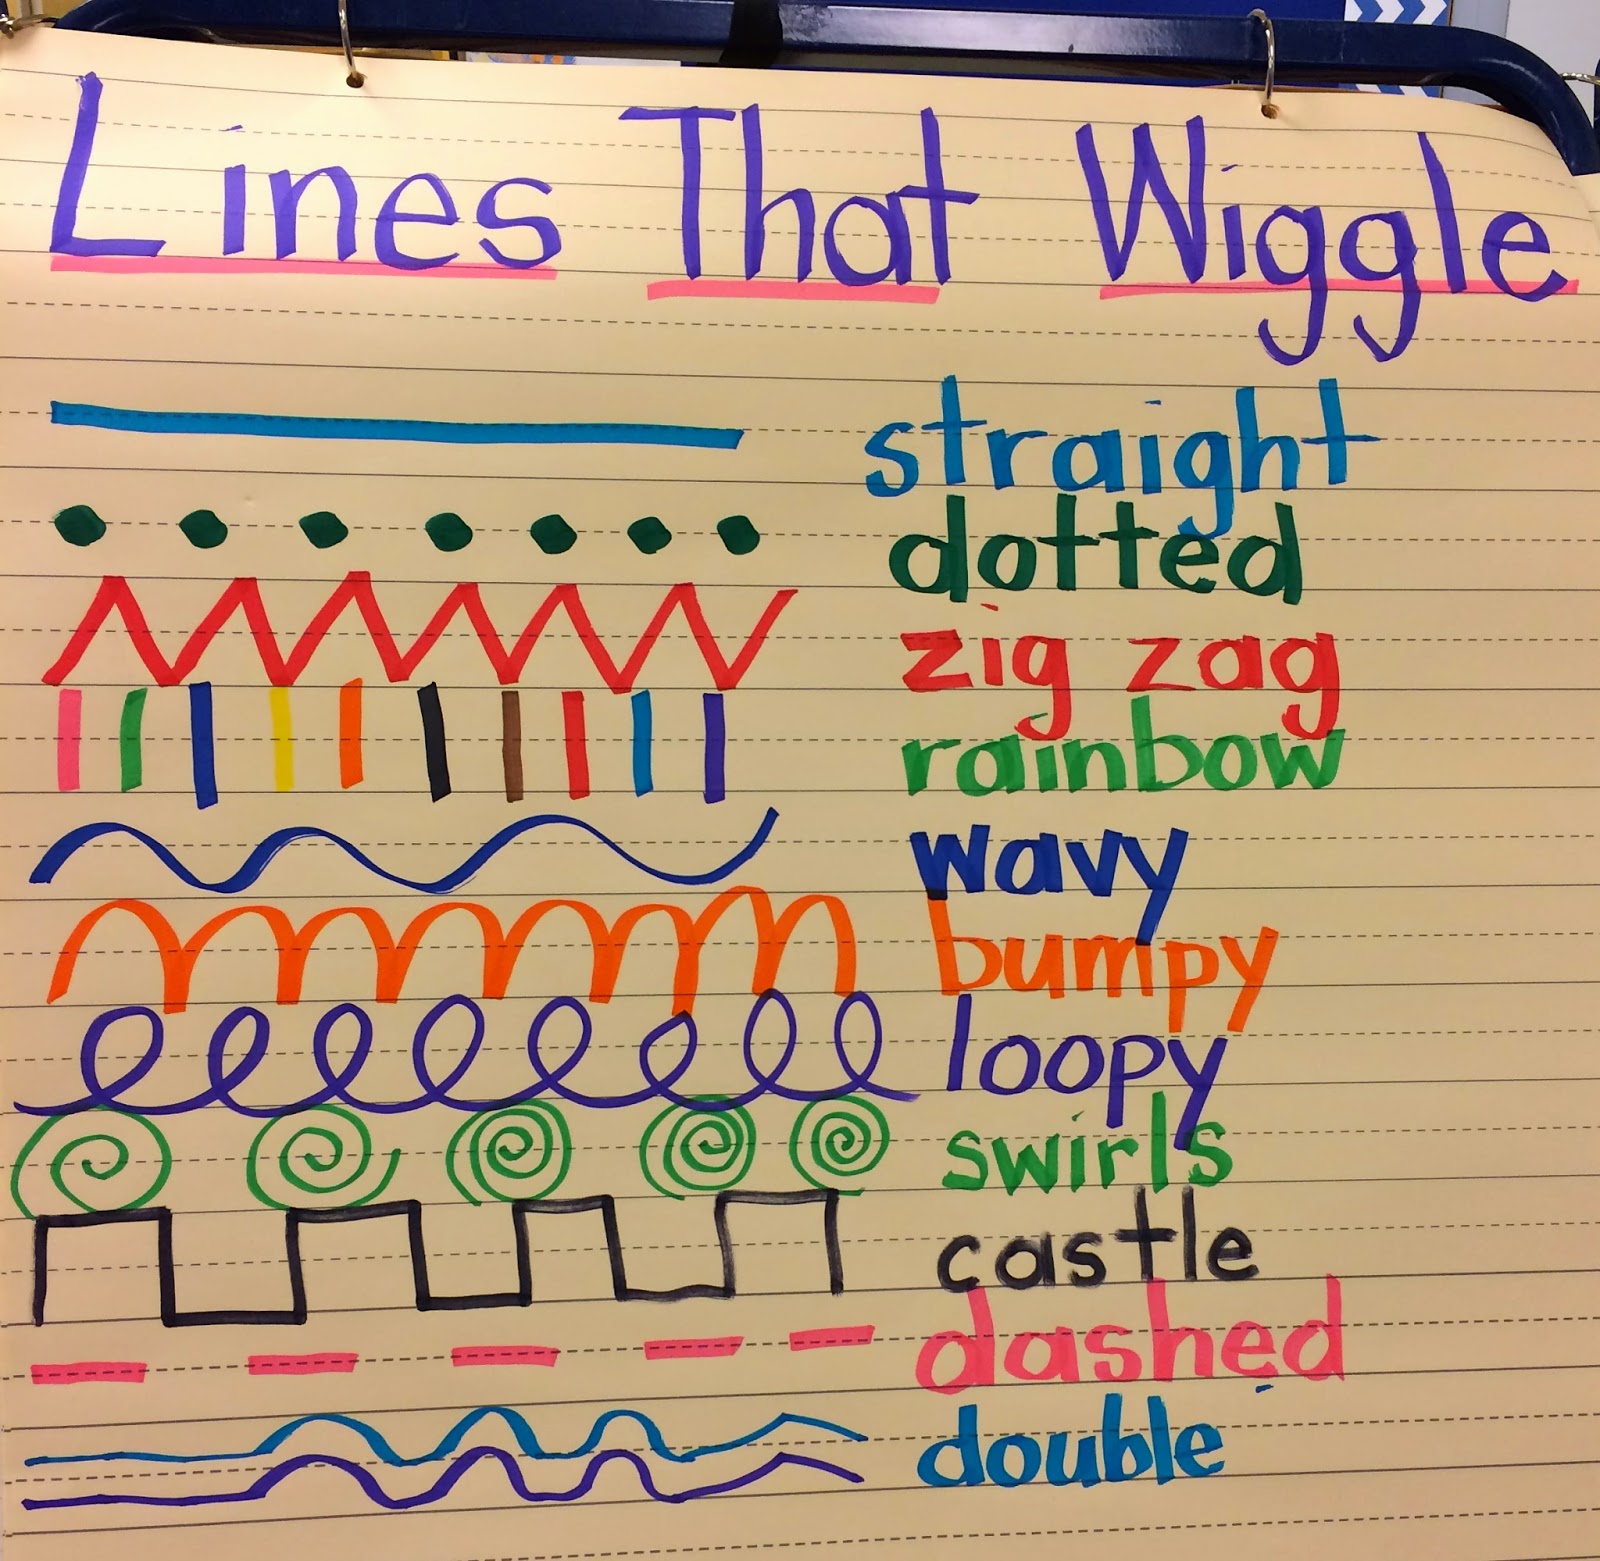 Lines That Wiggle
straight
dotted
zig zag
rainbow
wavy
bumpy
loopy
swirls
castle
dashed
double